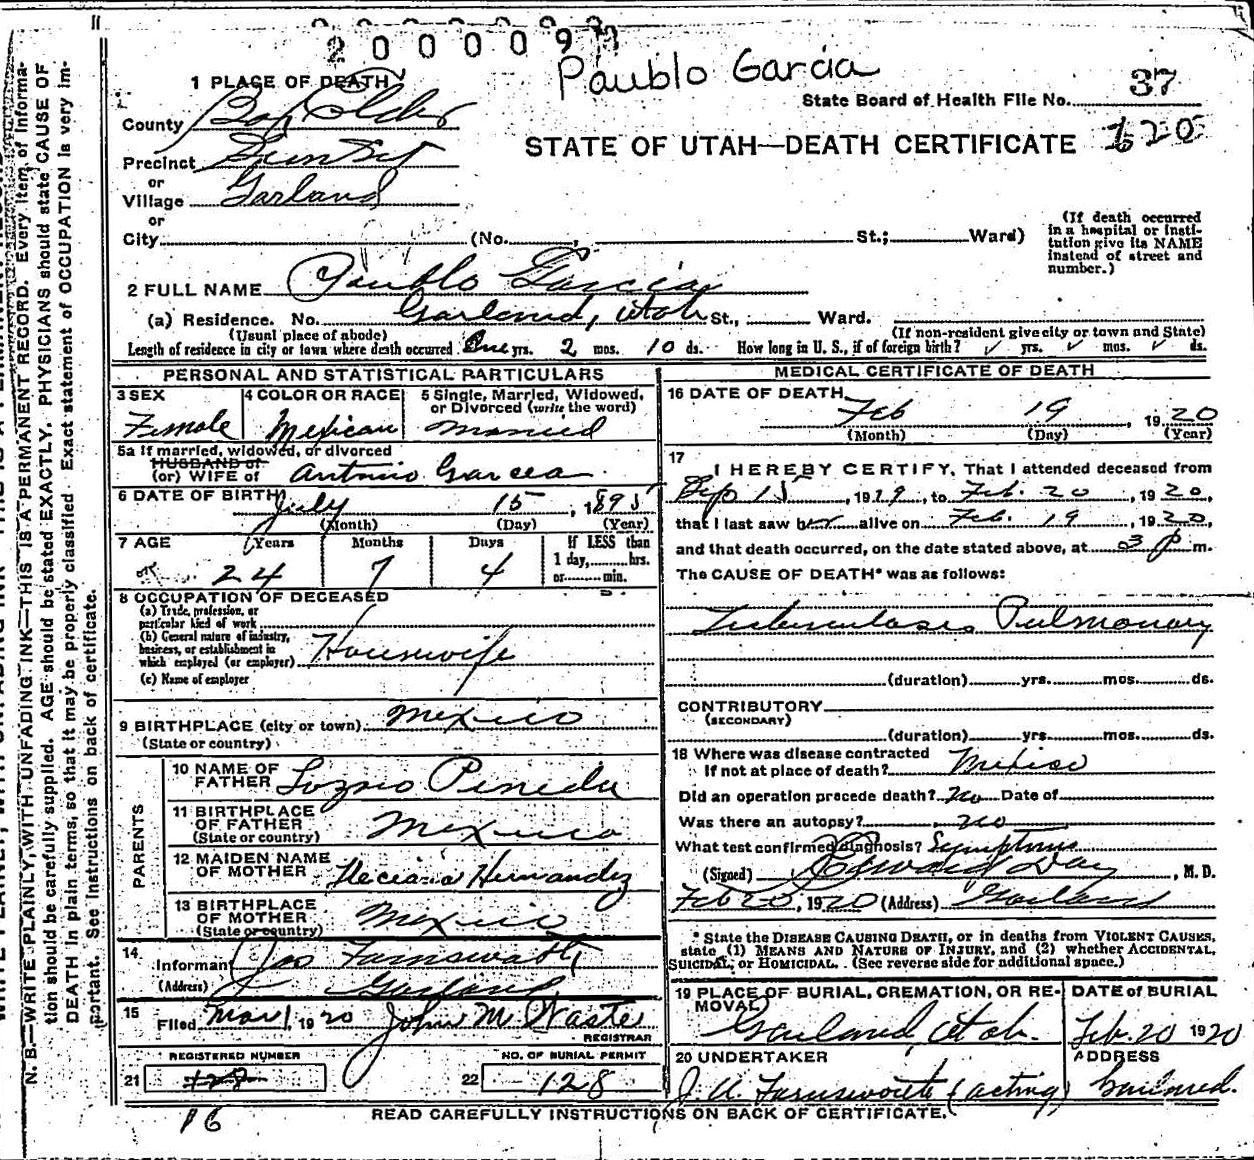 2000097
Paublo Garcia
1 PLACE OF DEATH
State Board of Health File No. 37
County Box Elder
STATE OF UTAH—DEATH CERTIFICATE 120
Precinct
or
Village Garland
or
City (No. St.; Ward)
(If death occurred in a hospital or institution give its NAME instead of street and number.)
2 FULL NAME Paublo Garcia
(a) Residence. No. Garland, Utah St., Ward.
(Usual place of abode) (If non-resident give city or town and State)
Length of residence in city or town where death occurred One yrs. 2 mos. 10 ds. How long in U. S., if of foreign birth? ✓ yrs. ✓ mos. ✓ ds.
PERSONAL AND STATISTICAL PARTICULARS
3 SEX Female
4 COLOR OR RACE Mexican
5 Single, Married, Widowed, or Divorced (write the word) Married
5a If married, widowed, or divorced
HUSBAND of
(or) WIFE of Antonio Garcea
6 DATE OF BIRTH July 15, 1895
(Month) (Day) (Year)
7 AGE Years Months Days If LESS than 1 day, hrs. or min.
24 7 4
8 OCCUPATION OF DECEASED
(a) Trade, profession, or particular kind of work
(b) General nature of industry, business, or establishment in which employed (or employer) Housewife
(c) Name of employer
9 BIRTHPLACE (city or town) Mexico
(State or country)
PARENTS
10 NAME OF FATHER Pineda
11 BIRTHPLACE OF FATHER (State or country) Mexico
12 MAIDEN NAME OF MOTHER Hernandez
13 BIRTHPLACE OF MOTHER (State or country) Mexico
14 Informant Jas Farnsworth
(Address) Garland
15 Filed Mar 1, 1920 John M Waste
REGISTRAR
REGISTERED NUMBER NO. OF BURIAL PERMIT
21 22 128
16
MEDICAL CERTIFICATE OF DEATH
16 DATE OF DEATH Feb 19, 1920
(Month) (Day) (Year)
17 I HEREBY CERTIFY, That I attended deceased from
Sep 15, 1919, to Feb. 20, 1920,
that I last saw her alive on Feb. 19, 1920,
and that death occurred, on the date stated above, at 3 p m.
The CAUSE OF DEATH* was as follows:
Tuberculosis Pulmonary
(duration) yrs. mos. ds.
CONTRIBUTORY
(SECONDARY)
(duration) yrs. mos. ds.
18 Where was disease contracted
If not at place of death? Mexico
Did an operation precede death? No Date of
Was there an autopsy? no
What test confirmed diagnosis? Symptoms
(Signed) Day, M.D.
Feb 20, 1920 (Address) Garland
* State the DISEASE CAUSING DEATH, or in deaths from VIOLENT CAUSES, state (1) MEANS AND NATURE OF INJURY, and (2) whether ACCIDENTAL, SUICIDAL, or HOMICIDAL. (See reverse side for additional space.)
19 PLACE OF BURIAL, CREMATION, OR REMOVAL Garland, Utah
DATE of BURIAL Feb. 20 1920
20 UNDERTAKER J. A. Farnsworth (acting)
ADDRESS Garland.
READ CAREFULLY INSTRUCTIONS ON BACK OF CERTIFICATE.
N. B.—WRITE PLAINLY, WITH UNFADING INK—THIS IS A PERMANENT RECORD. Every item of information should be carefully supplied. AGE should be stated EXACTLY. PHYSICIANS should state CAUSE OF DEATH in plain terms, so that it may be properly classified. Exact statement of OCCUPATION is very important. See instructions on back of certificate.